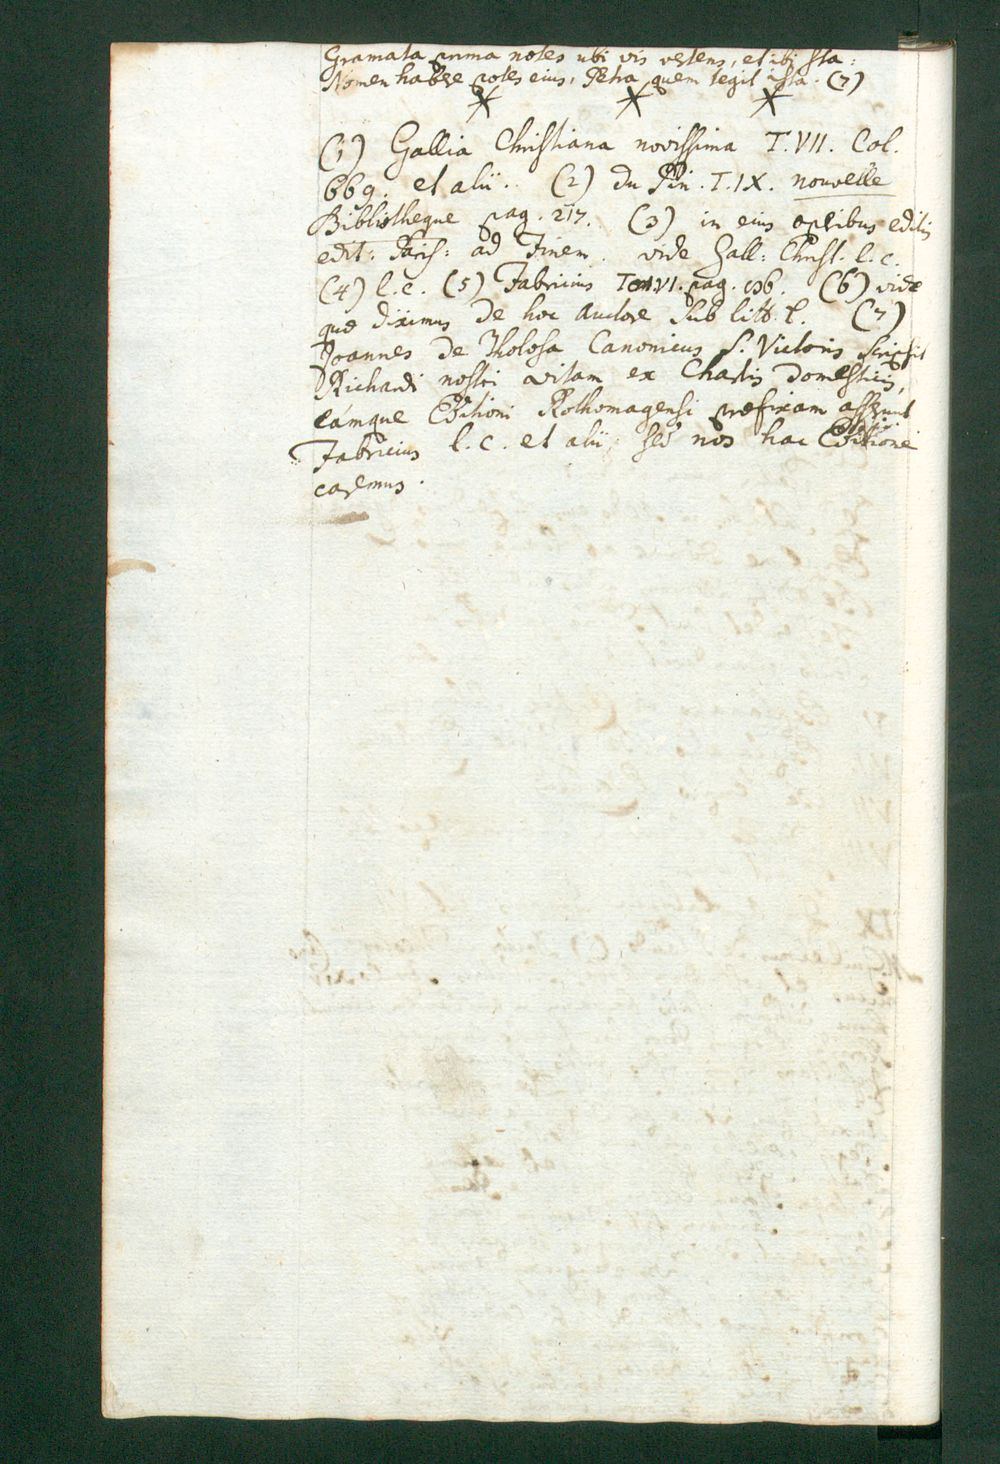 Gramata prima notes ubi vis vertens, et ibi sta:
Nomen habere potes eius, Petra quem tegit ista. (7)
* * *
(1) Gallia Christiana novissima T. VII. Col.
669. et alii. (2) du Pin. T. IX. nouvelle
Bibliotheque pag. 217. (3) in eius operibus editis
edit: Paris: ad Finem. vide Gall: Christ. l. c.
(4) l. c. (5) Fabricius Tom. VI. pag. (6) vide
que diximus de hoc Auctore sub litt. l. (7)
Joannes de Tholosa Canonicus S. Victoris scripsit
Richardi nostri vitam ex Chartis domesticis,
eámque Editioni Rothomagensi prefixam asserunt
Fabricius l. c. et alii, sed nos hac Editione
caremus.